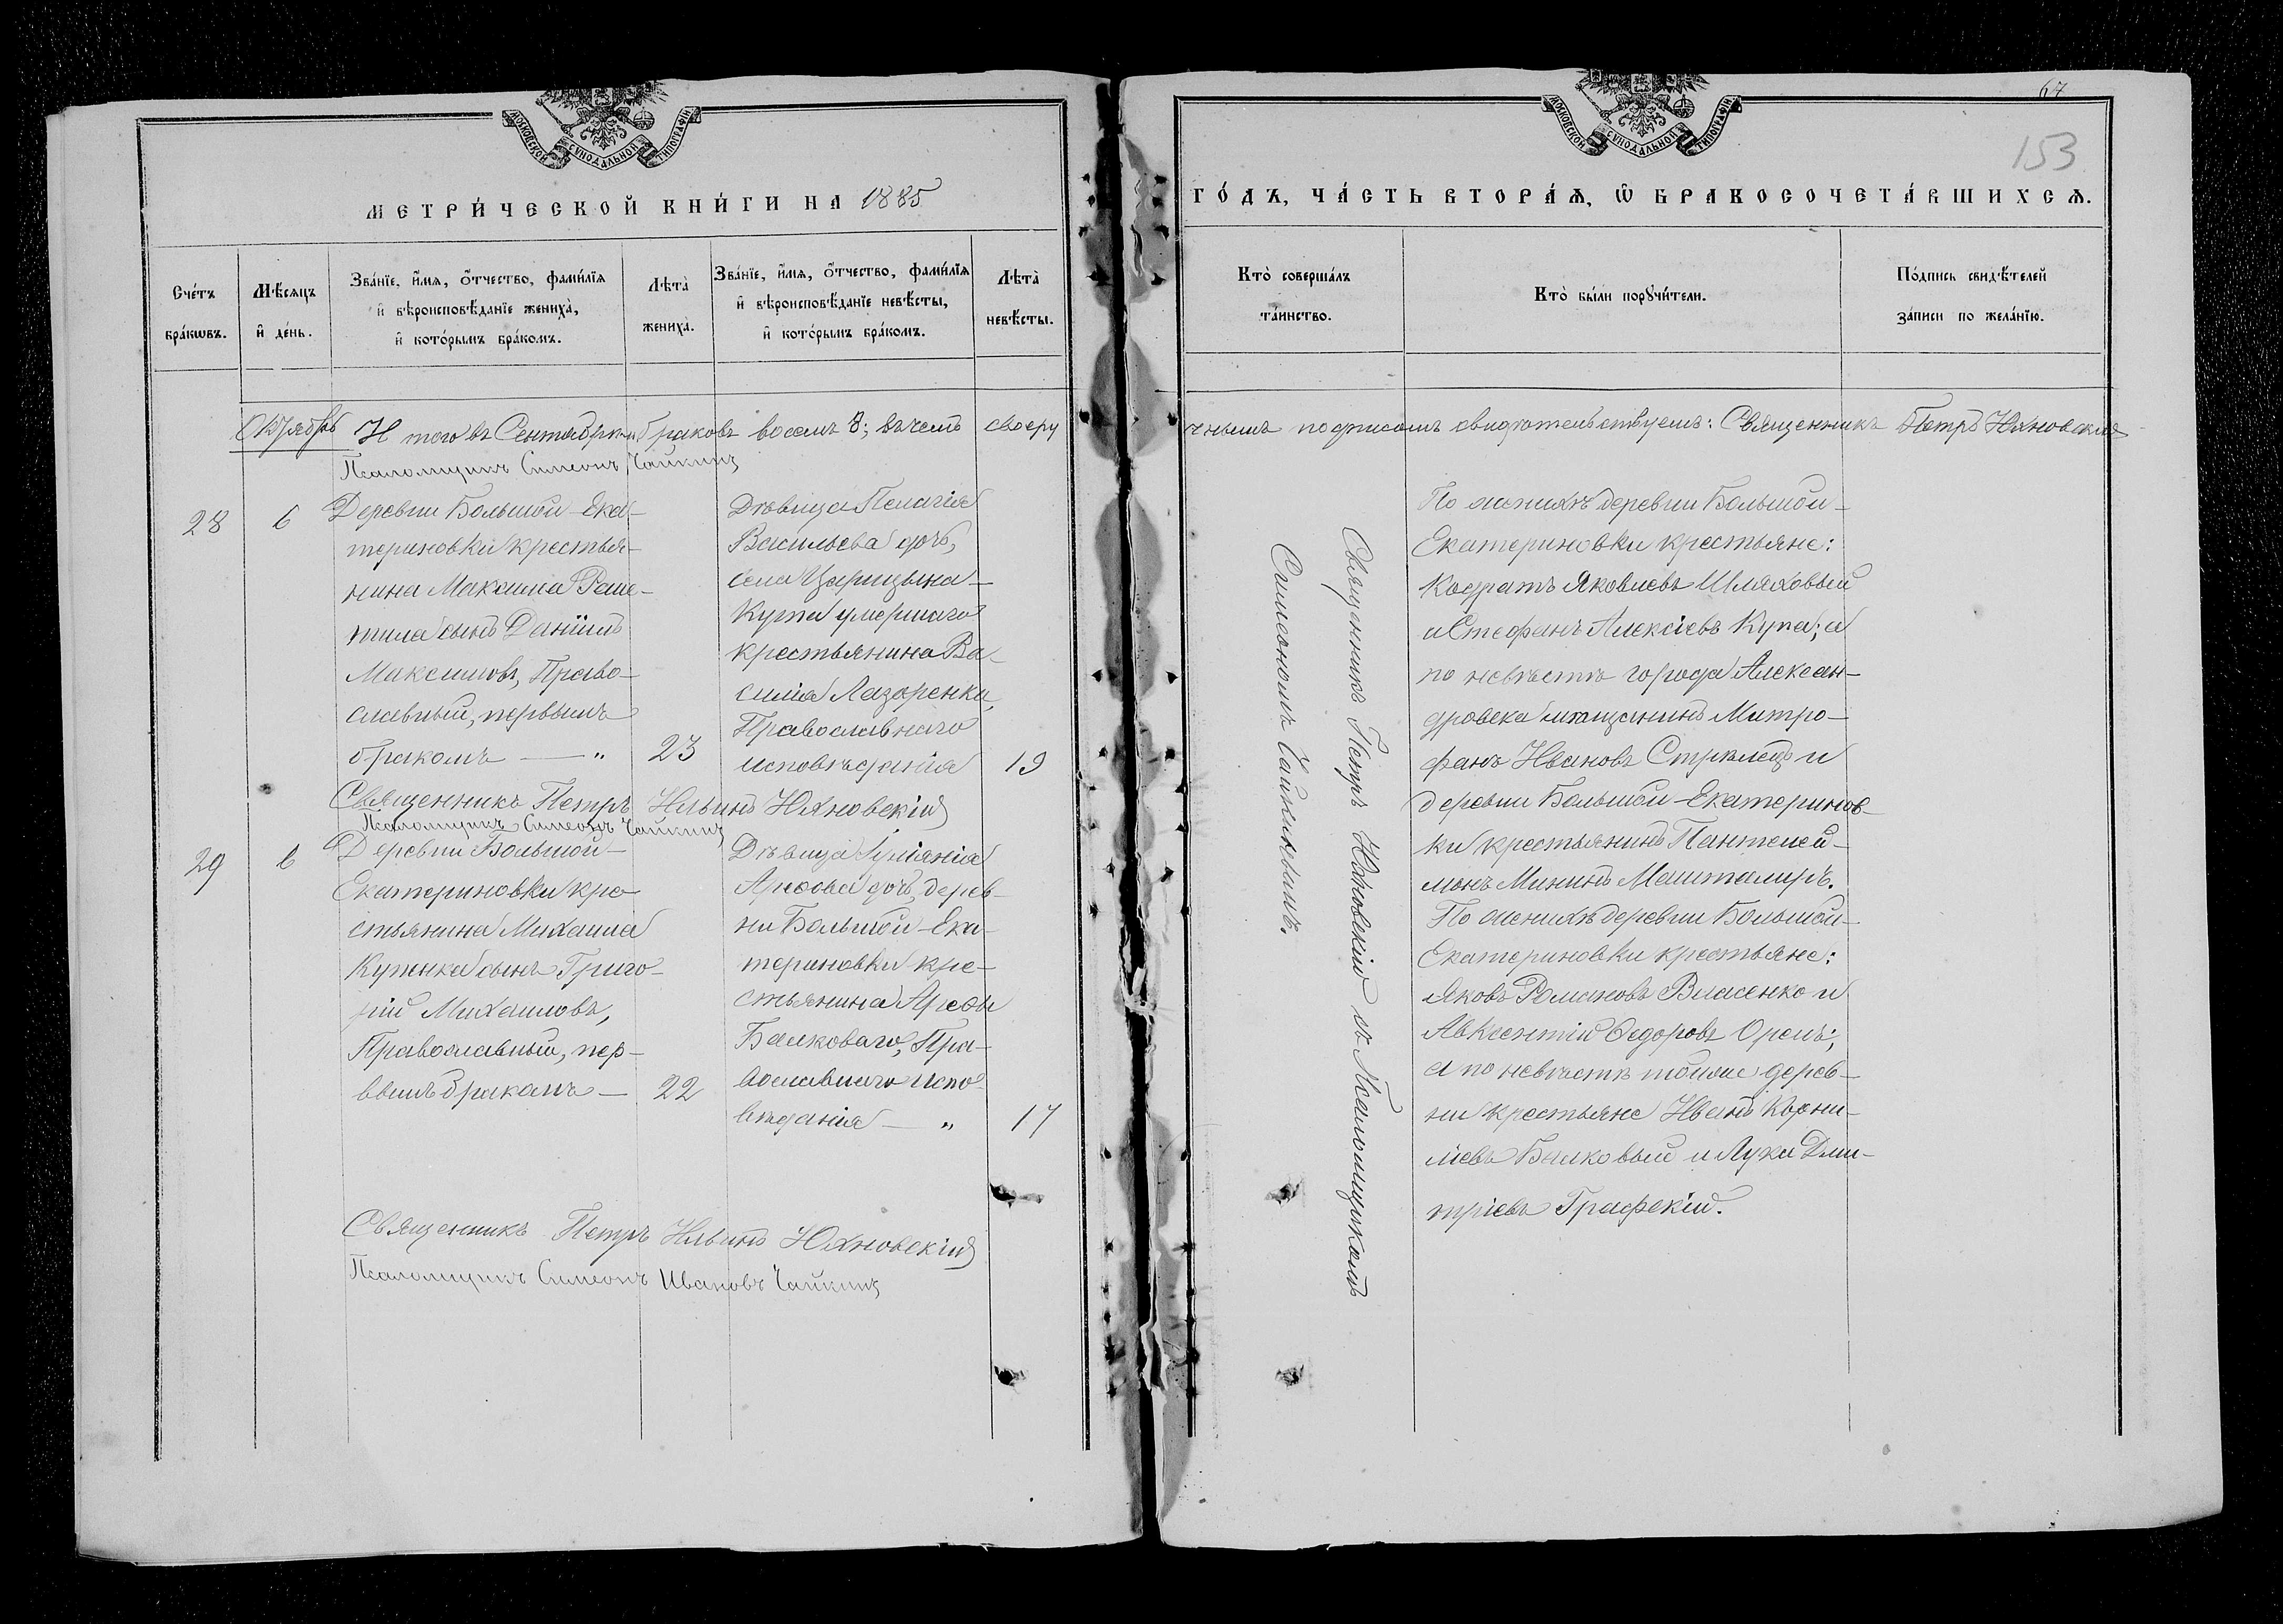 МОСКОВСКОЙ СѴНОДАЛЬНОЙ ТИПОГРАФІИ
МЕТРИ́ЧЕСКОЙ КНИ́ГИ НА 1885
Сче́тъ бра́кѡвъ.
Мѣ́сяцъ и҆ де́нь.
Зва́нїе, и҆́мѧ, ѻ҆́тчество, фами́лїѧ
и҆ вѣроисповѣ́данїе жениха̀,
и҆ кото́рымъ бра́комъ.
Лѣта̀
жениха̀.
Зва́нїе, и҆́мѧ, ѻ҆́тчество, фами́лїѧ
и҆ вѣроисповѣ́данїе невѣ́сты,
и҆ кото́рымъ бра́комъ.
Лѣта̀
невѣ́сты.
Октябрь
Итого въ Сентябрѣ браковъ восемь 8; въ чемъ своеру
Псаломщикъ Симеонъ Чайкинъ
28
6
Деревни Большой-Ека-
териновки крестья-
нина Максима Реше-
тила сынъ Даніилъ
Максимовъ, Право-
славный, первымъ
бракомъ — "
23
Дѣвица Пелагія
Васильева дочь,
села Царицына-
Кута умершаго
крестьянина Ва-
силія Лазоренка,
Православнаго
исповѣданія
19
Священникъ Петръ Ильинъ Юхновскій
Псаломщикъ Симеонъ Чайкинъ
29
6
Деревни Большой-
Екатериновки кре-
стьянина Михаила
Купенка сынъ Григо-
рій Михаиловъ,
Православный, пер-
вымъ бракомъ —
22
Дѣвица Іуліанія
Арефова дочь, дерев-
ни Большой-Ека-
териновки кре-
стьянина Арефы
Балковаго, Пра-
вославнаго испо-
вѣданія — "
17
Священникъ Петръ Ильинъ Юхновскій
Псаломщикъ Симеонъ Ивановъ Чайкинъ
67
153
МОСКОВСКОЙ СѴНОДАЛЬНОЙ ТИПОГРАФІИ
ГО́ДЪ, ЧА́СТЬ ВТОРА́Ѧ, Ѡ҆ БРАКОСОЧЕТА́ВШИХСѦ.
Кто̀ соверша́лъ
та́инство.
Кто̀ бы́ли порꙋчи́тели.
По́дпись свидѣ́телей
за́писи по жела́нїю.
чнымъ подписомъ свидѣтельствуемъ: Священникъ Петръ Юхновскій
Священникъ Петръ Юхновскій съ Псаломщикомъ
Симеономъ Чайкинымъ.
По женихѣ деревни Большой-
Екатериновки крестьяне:
Кодратъ Яковлевъ Шляховый
и Стефанъ Алексіевъ Купа; а
по невѣстѣ города Алексан-
дровска мѣщанинъ Митро-
фанъ Ивановъ Стрѣлецъ и
деревни Большой-Екатеринов-
ки крестьянинъ Пантелей-
монъ Мининъ Машталиръ.
По женихѣ деревни Большой-
Екатериновки крестьяне:
Яковъ Романовъ Власенко и
Авксентій Ѳедоровъ Орелъ;
а по невѣстѣ тойже дерев-
ни крестьяне Иванъ Корни-
ліевъ Балковый и Лука Дми-
тріевъ Графскій.